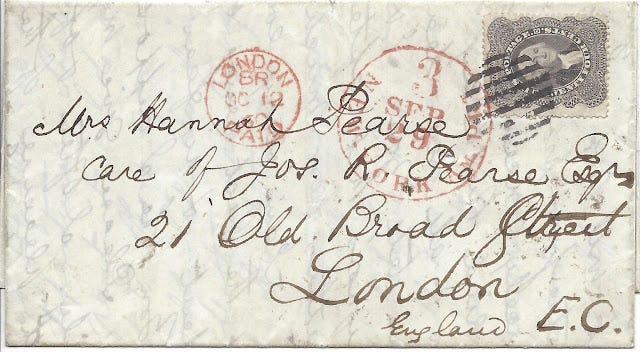 LONDON
BR
OC 12
60
PAID
NEW YORK
3
SEP
29
Mrs Hannah Pearse
care of Jos. R. Pearse Esqr
21 Old Broad Street
London
England E.C.